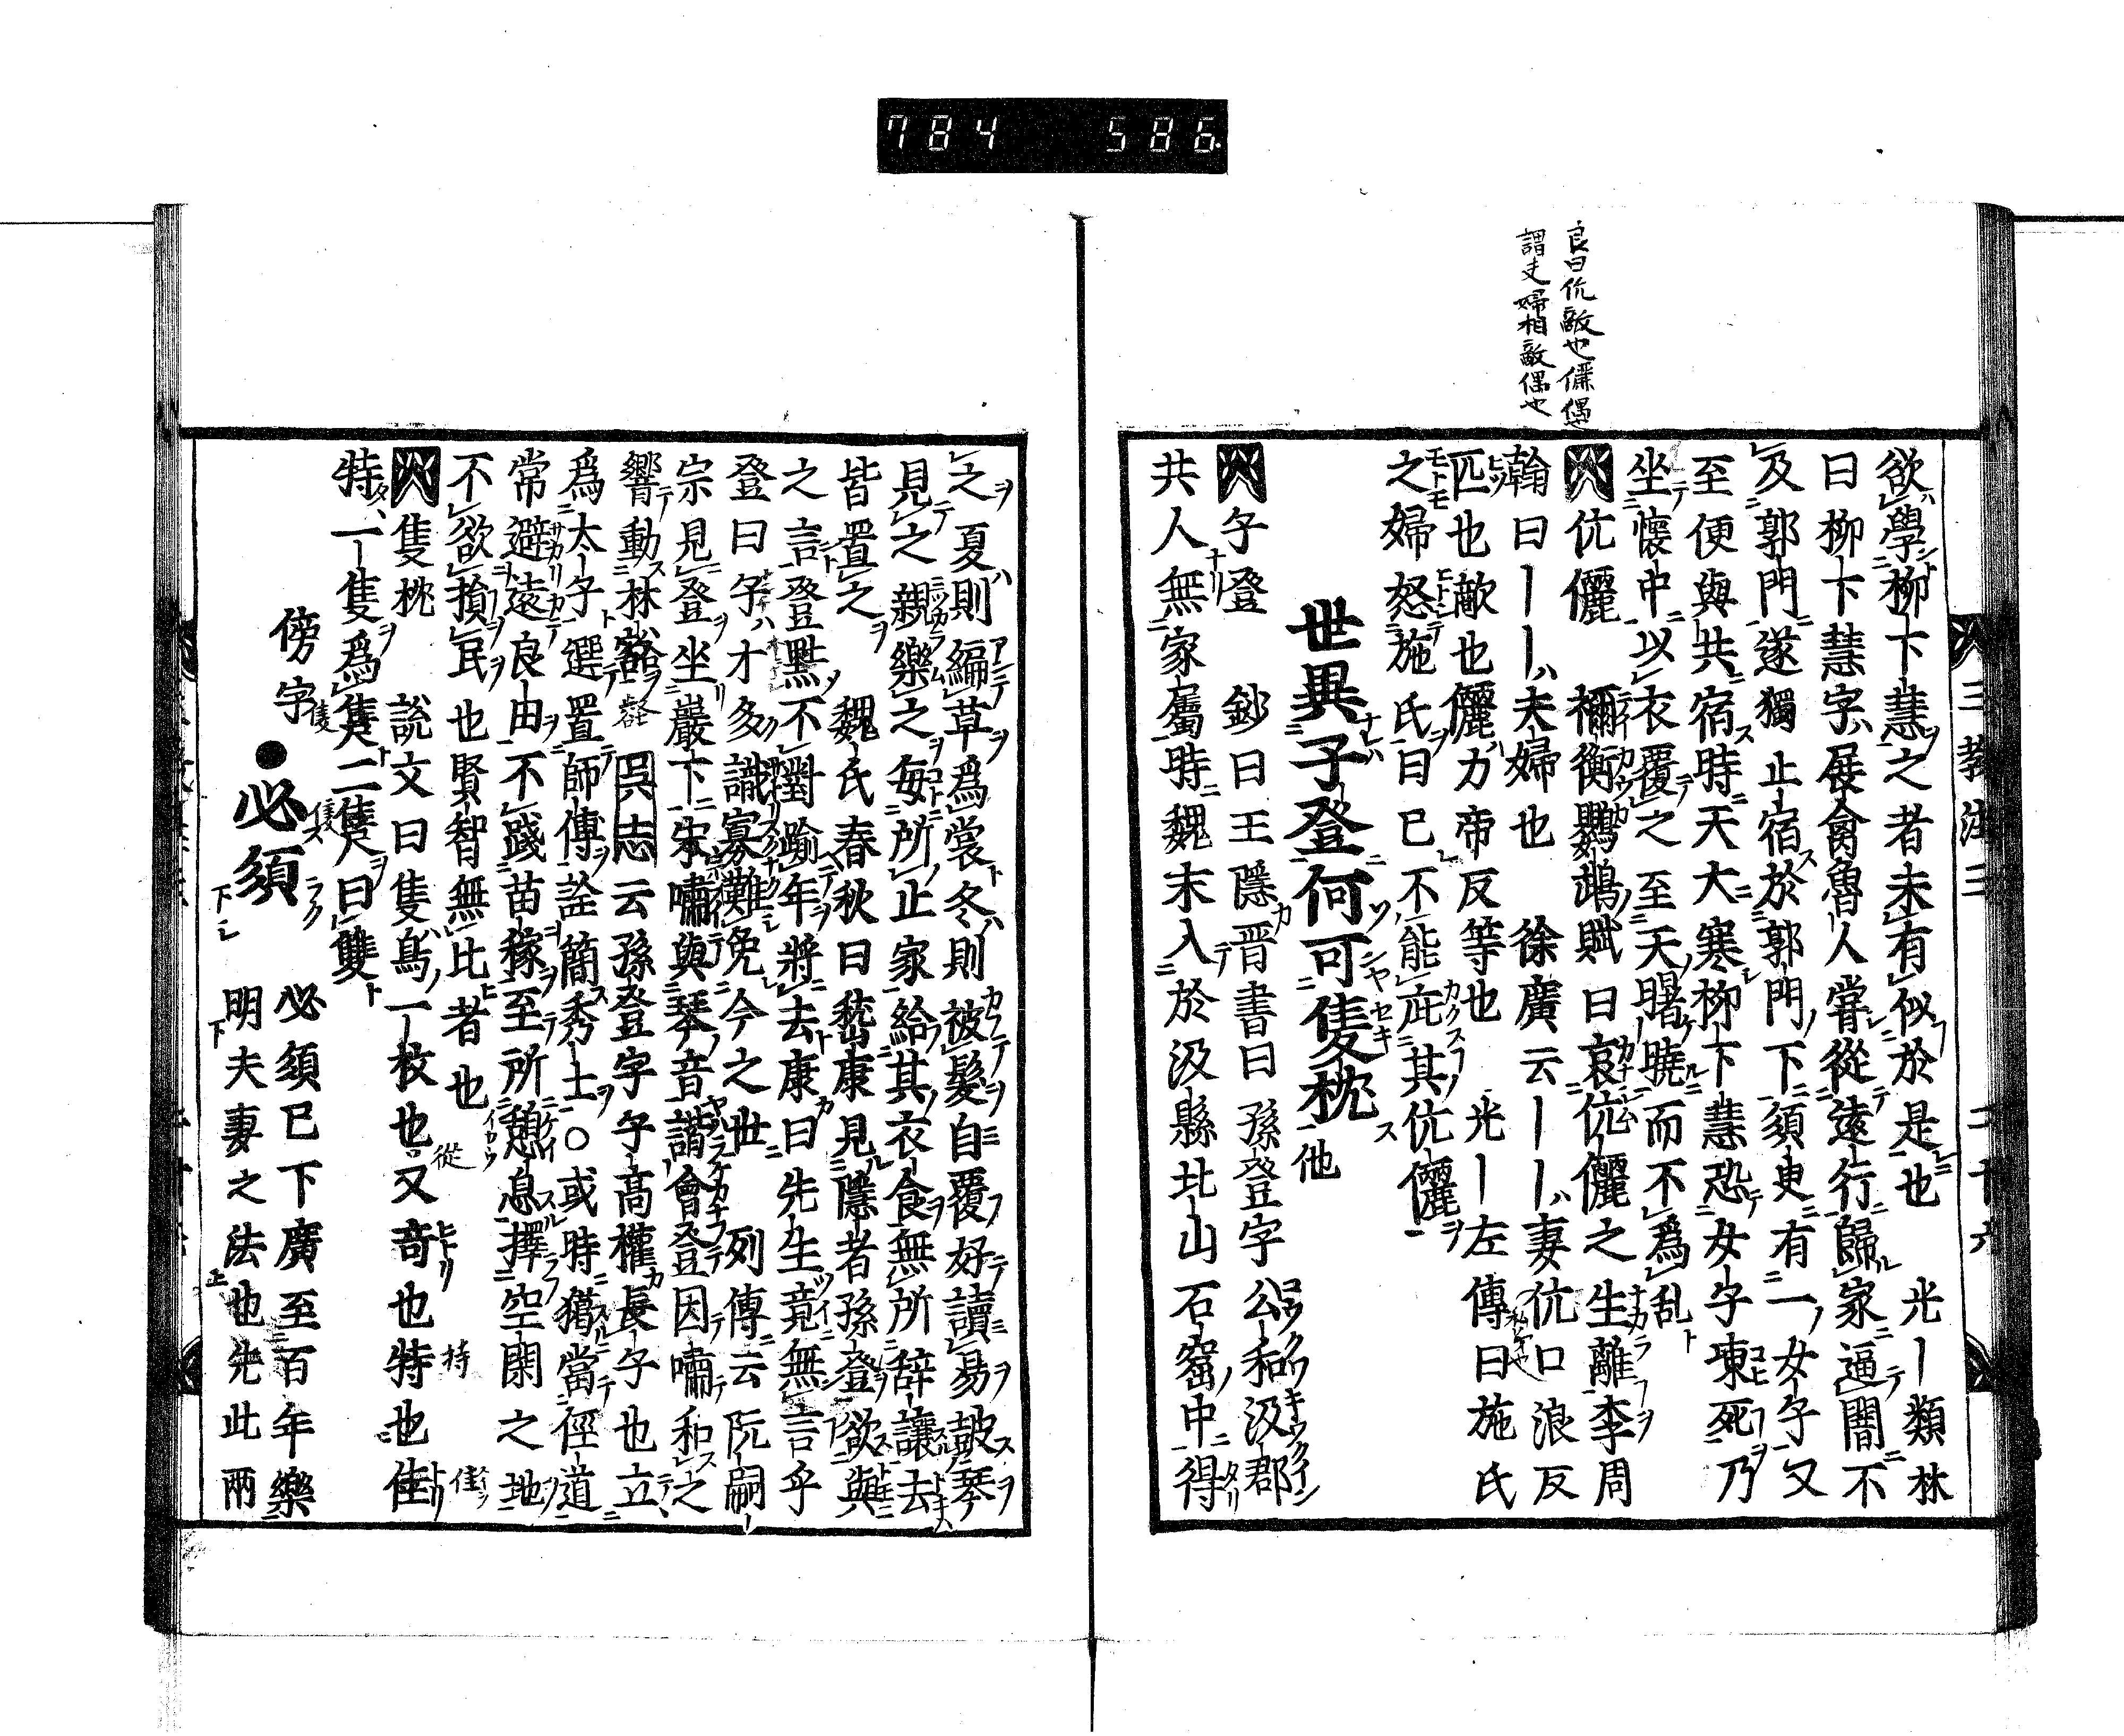 784 586.
良曰伉敵也儷偶也
謂夫婦相敵偶也
三教注三 二十六
欲學柳下慧之者未有似於是也 光一類林
曰柳下慧字展禽魯人嘗從遠行歸家逼闇不
及郭門遂獨止宿於郭門下須臾有一女子又
至便與共宿時天大寒柳下慧恐女子凍死乃
坐懷中以衣覆之至天曙曉而不爲乱
伉儷 禰衡鸚鵡賦曰哀伉儷之生離李周
翰曰一一夫婦也 徐廣云一一妻伉口浪反
匹也敵也儷力帝反等也 光一左傳曰施氏
之婦怒施氏曰已不能庇其伉儷
世異子登何可隻枕他
子登 鈔曰王隱晋書曰孫登字公和汲郡
共人無家屬時魏末入於汲縣北山石窟中得
之夏則編草爲裳冬則被髮自覆好讀易鼓琴
見之親樂之每所止家給其衣食無所辭讓去
皆置之 魏氏春秋曰嵆康見隱者孫登欲與
之言登黙不對踰年將去康曰先生竟無言乎
登曰子才多識寡難免今之世 列傳云阮嗣
宗見登坐巖下宋嘯與琴音諧會登因嘯和之
響動林谿 呉志云孫登字子高權長子也立
爲太子選置師傅詮簡秀士○或時獵當徑道
常避遠良由不踐苗稼至所憩息擇空閑之地
不欲損民也賢智無比者也
隻枕 説文曰隻鳥一枚也又竒也特也隹
特一隻爲隻二隻曰雙
傍字●必須 必須已下廣至百年樂
明夫妻之法也先此兩